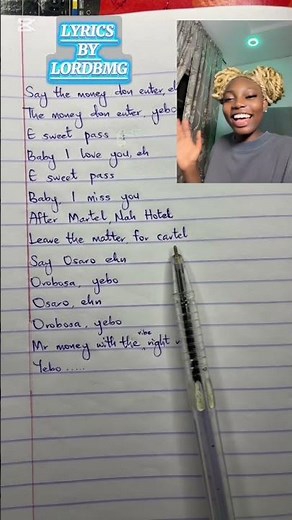 LYRICS
BY
LORDBMG
Say the money don enter, eh
The money don enter, yebo
E sweet pass
Baby I love you, eh
E sweet pass
Baby, I miss you
After Martel, Nah Hotel
Leave the matter for cartel
Say Osaro ehn
Orobosa, yebo
Osaro, ehn
Orobosa, yebo
Mr money with the vibe, right
Yebo .....